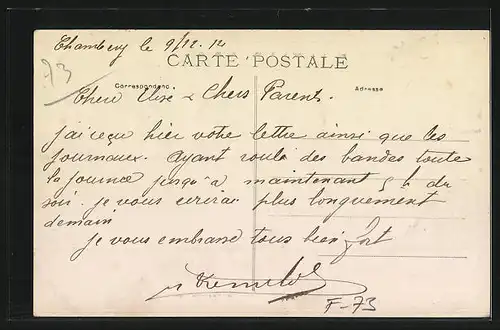 Chambery le 9/12.12
73
CARTE POSTALE
Correspondance
Adresse
Chere Elise & Chers Parents.
j'ai reçu hier votre lettre ainsi que les
journaux. Ayant roulé des bandes toute
la journee jusqu'à maintenant 5 h du
soir. je vous ecrirai plus longuement
demain
je vous embrasse tous bien fort
F-73